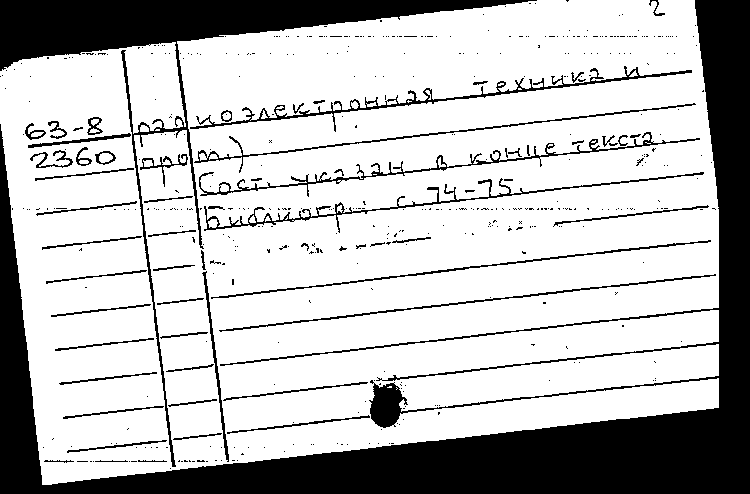 2
63-8 радиоэлектронная техника и
2360 пром.)
Сост. указан в конце текста.
Библиогр.: с. 74-75.